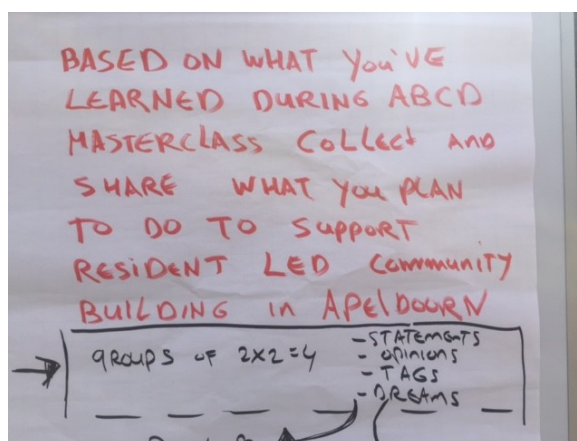 BASED ON WHAT You'VE
LEARNED DURING ABCD
MASTERCLASS COLLECT AND
SHARE WHAT You PLAN
TO DO TO SUPPORT
RESIDENT LED COMMUNITY
BUILDING in APElDOORN
gROUPS OF 2x2=4
- STATEMENTS
- OPINIONS
- TAGS
- DREAMS